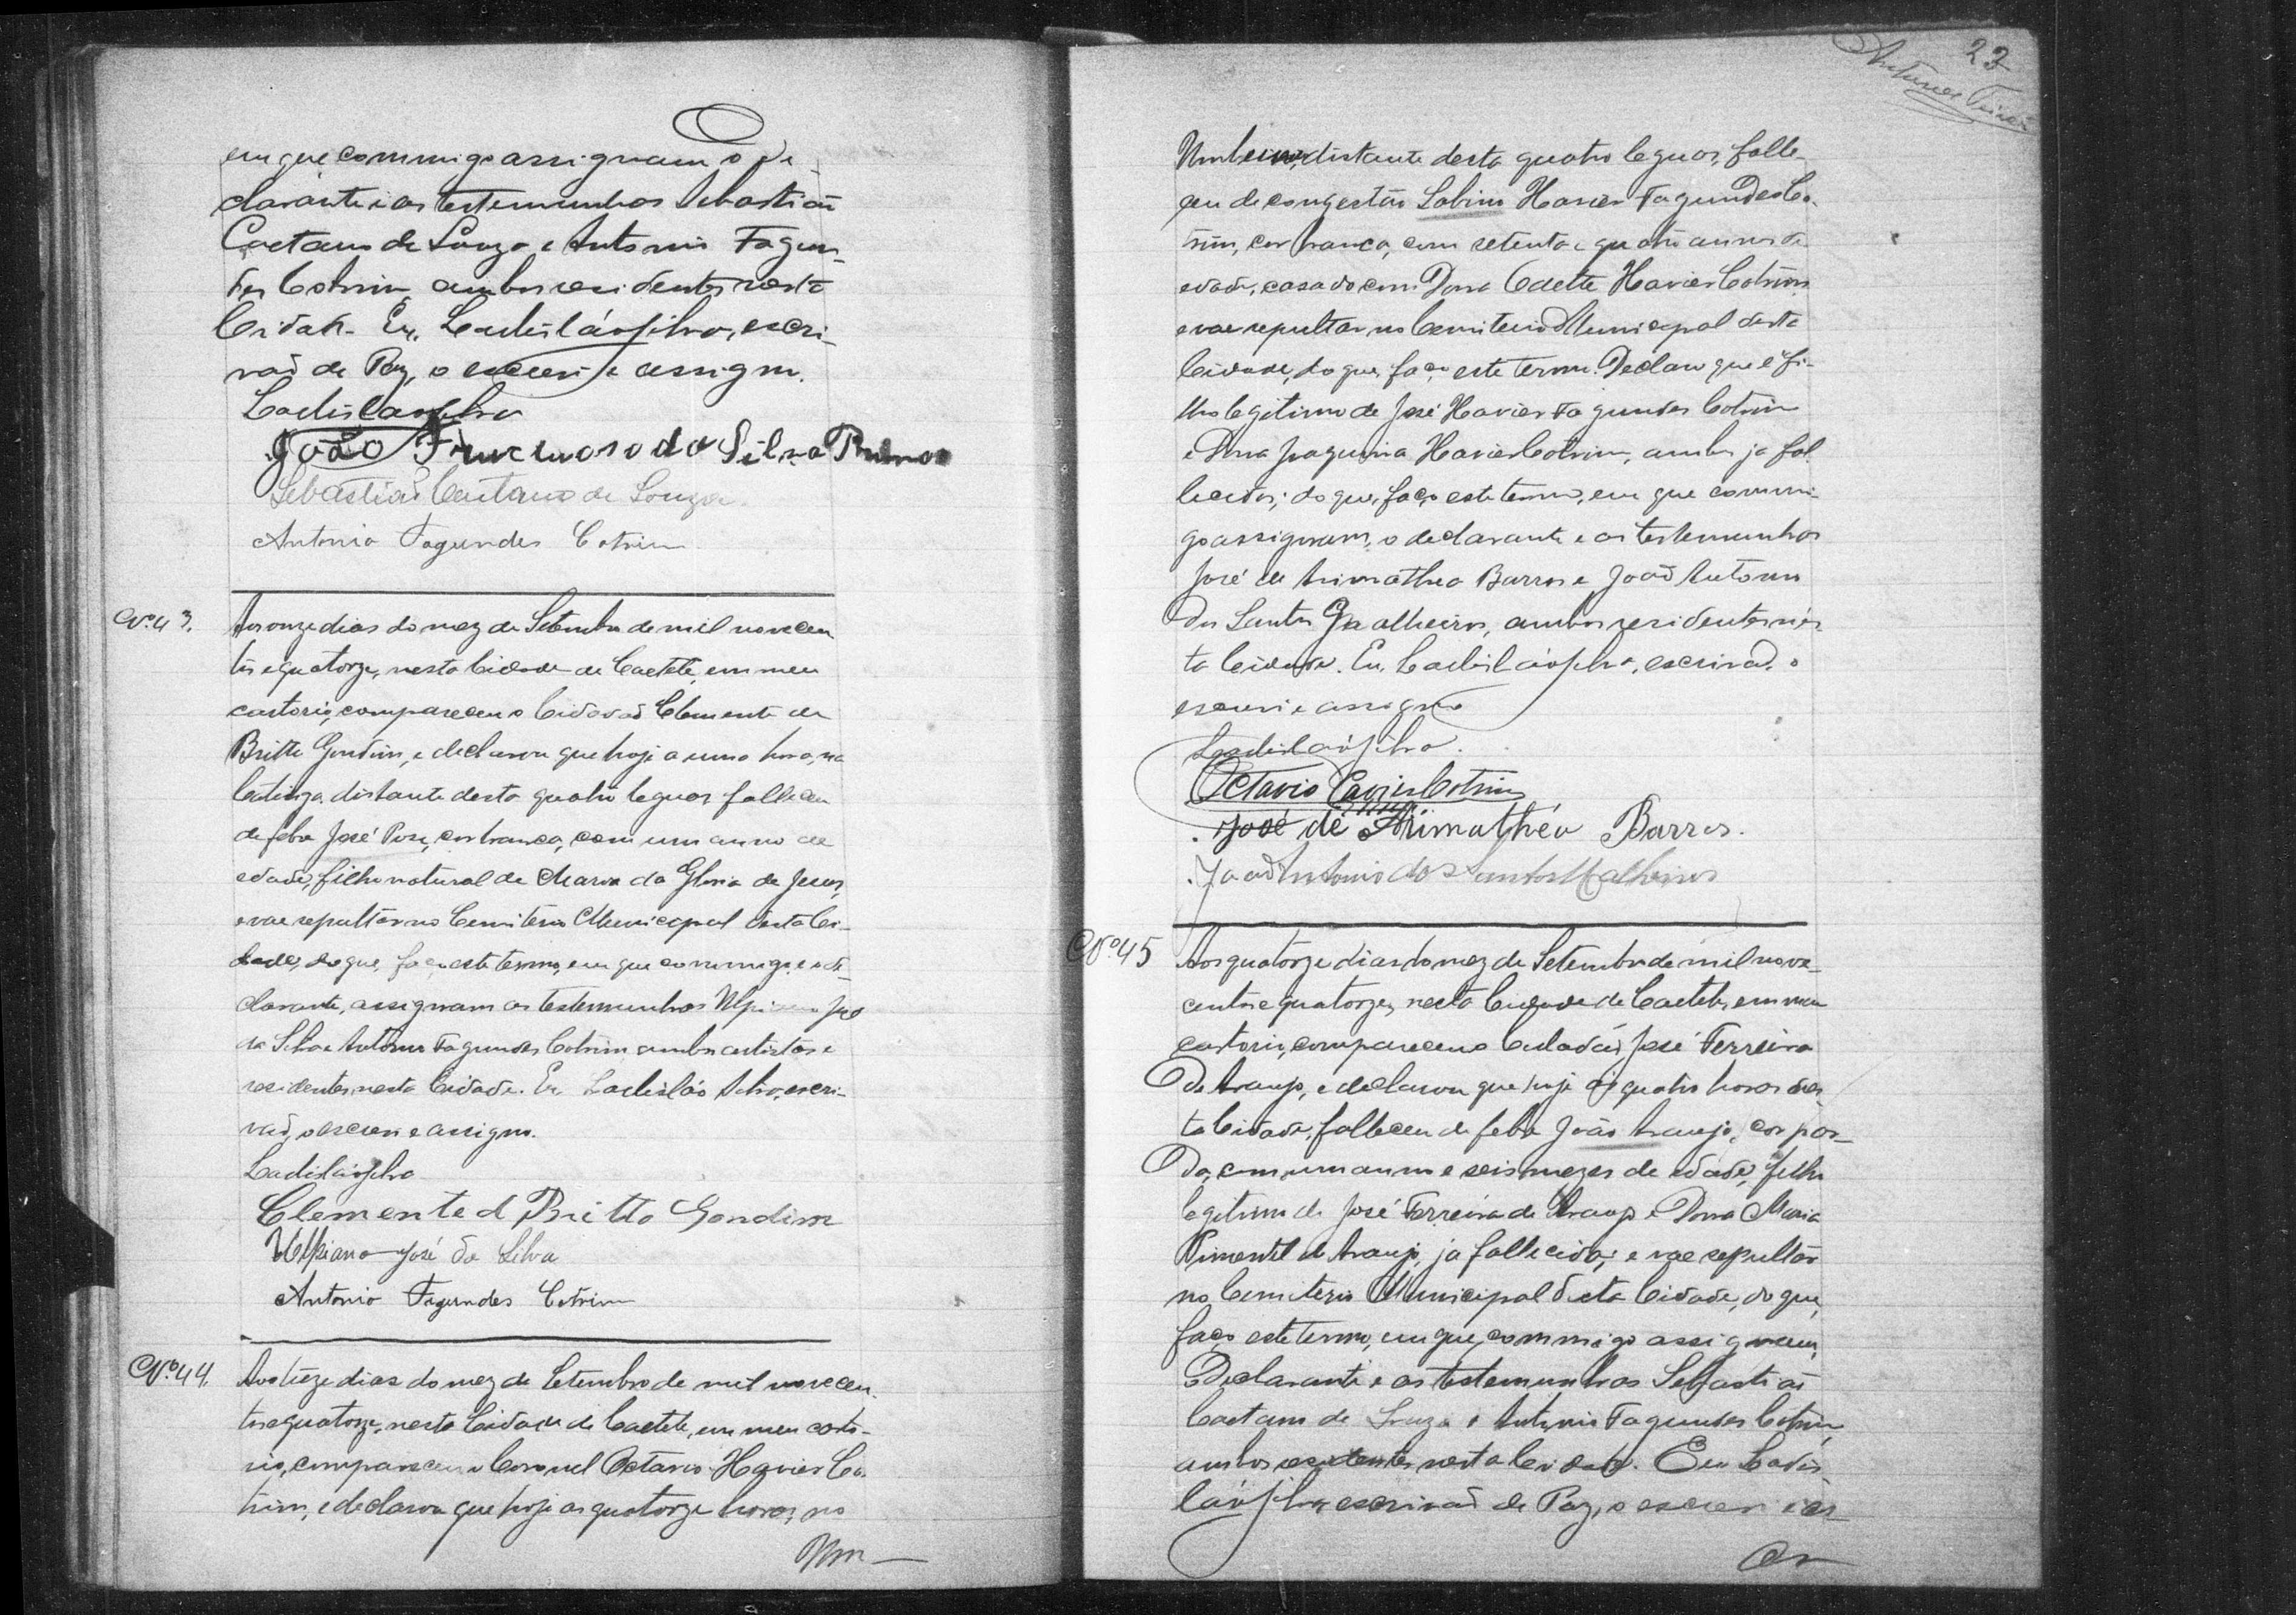 em que commigo assignam o de
clarante e as testemunhas Sebastião
Caetano de Souza e Antonio Fagun-
des Cotrim ambos residentes nesta
Cidade. Eu, Ladisláo Silva, escri-
vaõ de Paz, o escrevi e assigno.
Ladisláo Silva
João Fructuoso da Silva
Sebastiaõ Caetano de Souza
Antonio Fagundes Cotrim
Nº 43.
Aos onze dias do mez de Setembro de mil novecen
tos e quatorze, nesta Cidade de Caeteté, em meu
cartorio, compareceu o Cidadaõ Clemente de
Britto Gondim, e declarou que hoje a uma hora, na
Catinga distante desta quatro leguas falleceu
de febre José, cor branca, com um anno de
edade, filho natural de Maria da Gloria de Jesus,
e vae sepultar no Cemiterio Municipal desta Ci-
dade, do que, faço este termo, em que commigo e o de-
clarante, assignam as testemunhas Ulpiano José
da Silva e Antonio Fagundes Cotrim ambos artistas e
residentes nesta Cidade. Eu Ladisláo Silva, escri-
vaõ, o escrevi e assigno.
Ladisláo Silva
Clemente d Britto Gondim
Ulpiano José da Silva
Antonio Fagundes Cotrim
Nº 44.
Aos treze dias do mez de Setembro de mil novecen
tos e quatorze, nesta Cidade de Caeteté, em meu carto-
rio, compareceu o Coronel Octavio Havier Co-
trim, e declarou que hoje as quatorze horas, no
Um-
22
Antunes
Umbuseiro, distante desta quatro leguas, falle-
ceu de congestão Sabino Havier Fagundes Co-
trim, cor branca, com setenta e quatro annos de
edade, casado com Dona Havier Cotrim
e vae sepultar no Cemiterio Municipal desta
Cidade, do que, faço este termo. Declaro que é fi-
lho legitimo de José Havier Fagundes Cotrim
e Dona Joaquina Havier Cotrim, ambos ja fal-
lecidos; do que, faço este termo, em que commi-
go assignam, o declarante e as testemunhas
José de Arimathea Barros e Joaõ Antonio
dos Santos Malheiros, ambos residentes nes-
ta Cidade. Eu, Ladisláo Silva, escrivaõ, o
escrevi e assigno
Ladisláo Silva.
Octavio Xavier Cotrim
José de Arimathéa Barros.
Joaõ Antonio dos Santos Malheiros
Nº 45
Aos quatorze dias do mez de Setembro de mil nove-
centos e quatorze, nesta Cidade de Caeteté, em meu
cartorio, compareceu o Cidadaõ José Ferreira
de Araujo, e declarou que hoje ás quatro horas nes-
ta Cidade, falleceu de febre João Araujo, cor par-
da, com um anno e seis mezes de edade, filho
legitimo de José Ferreira de Araujo e Dona Maria
Pimentel de Araujo, ja fallecida; e vae sepultar
no Cemiterio Municipal desta Cidade, do que,
faço este termo, em que, commigo assignam,
o Declarante e as testemunhas Sebastiaõ
Caetano de Souza e Antonio Fagundes Cotrim,
ambos residentes nesta Cidade. Eu Ladis-
láo Silva, escrivaõ de Paz, o escrevi e as-
as